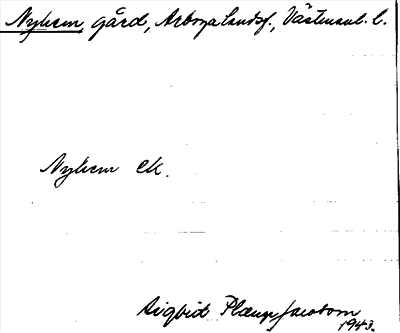 Nyhem, gård, Arboga landsf., Västmanl. l.
Nyhem ek.
Sigbrid Plænge Jacobson
1943.